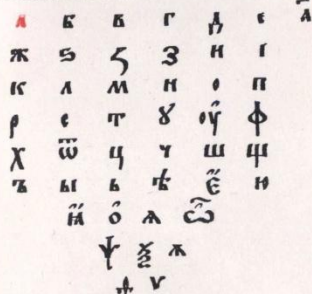 а б в г д є
ж ѕ ꙁ з н і
к л м н о п
р с т ꙋ оу҆ ф
х ѿ ц ч ш щ
ъ ы ь ѣ є҆ ю
ꙗ҆ о҆ ѧ ѽ
ѱ ѯ ѧ
ѵ